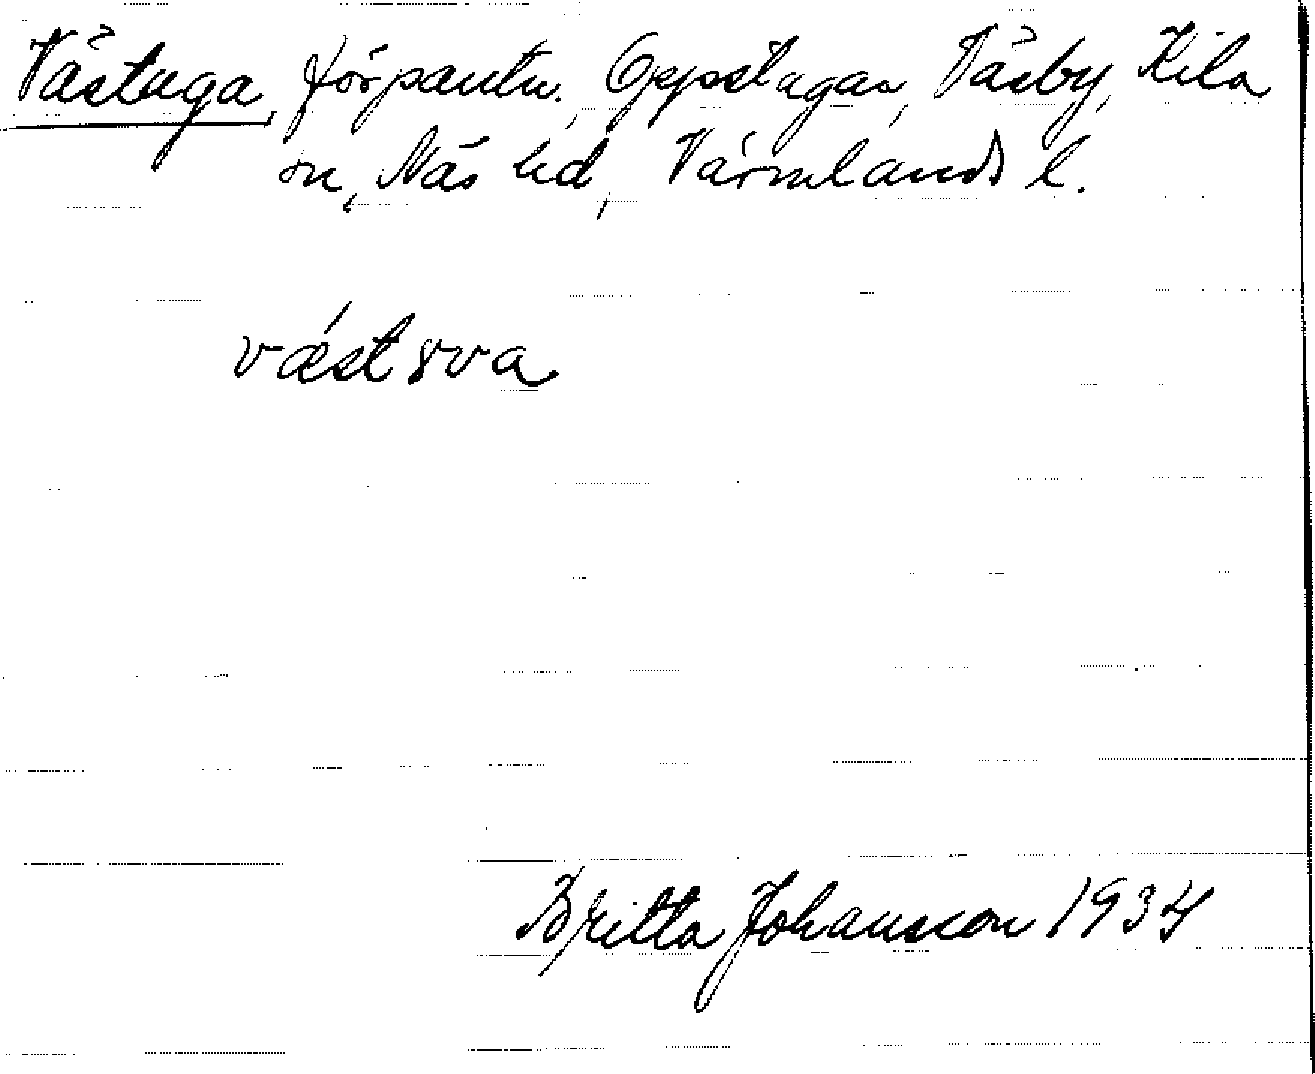 Västuga, förpantn., Oppstugan, Väsby, Kila
sn, Näs hd, Värmlands l.
væ´stɤva
Britta Johansson 1934